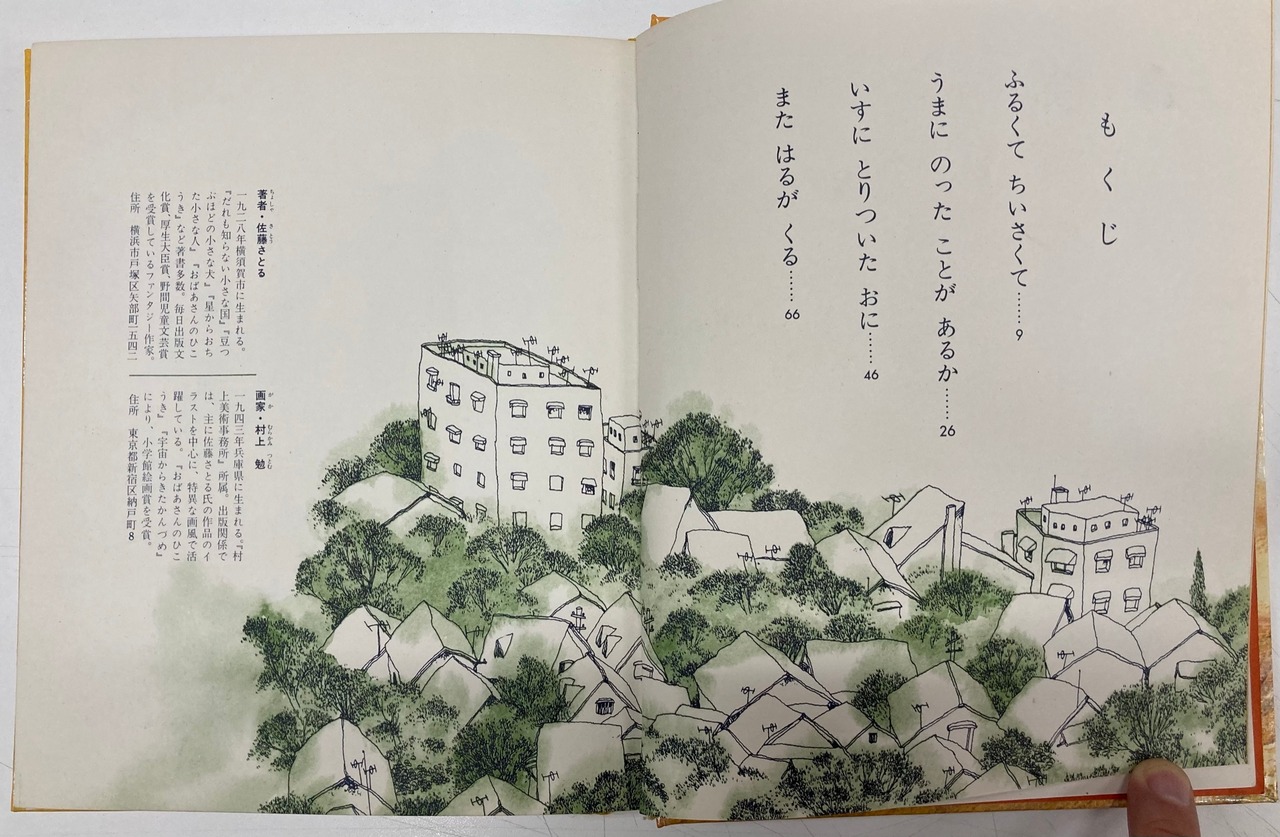 もくじ
ふるくて ちいさくて……9
うまに のった ことが あるか……26
いすに とりついた おに……46
また はるが くる……66
著者・佐藤さとる
ちょしゃ さとう
一九二八年横須賀市に生まれる。
『だれも知らない小さな国』『豆つ
ぶほどの小さな犬』『星からおち
た小さな人』『おばあさんのひこ
うき』など著書多数。毎日出版文
化賞、厚生大臣賞、野間児童文芸賞
を受賞しているファンタジー作家。
住所 横浜市戸塚区矢部町一五四二
画家・村上 勉
がか むらかみ つとむ
一九四三年兵庫県に生まれる。『村
上美術事務所』所属。出版関係で
は、主に佐藤さとる氏の作品のイ
ラストを中心に、特異な画風で活
躍している。『おばあさんのひこ
うき』『宇宙からきたかんづめ』
により、小学館絵画賞を受賞。
住所 東京都新宿区納戸町8